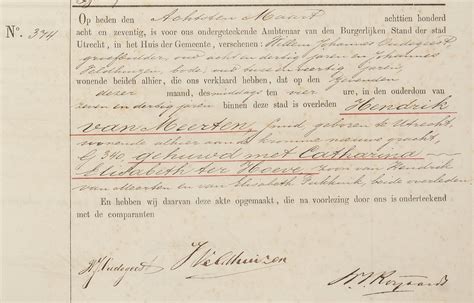 Nº. 374
Op heden den Achtsten Maart achttien honderd
acht en zeventig, is voor ons ondergeteekende Ambtenaar van den Burgerlijken Stand der stad
Utrecht, in het Huis der Gemeente, verschenen: Willem Johannes Oudegeest,
oud acht en dertig jaren en Johannes
Veldhuizen, bode, oud twee en veertig jaren,
wonende beiden alhier, die ons verklaard hebben, dat op den Zevenden
dezer maand, des middags ten vier ure, in den ouderdom van
zeven en dertig jaren binnen deze stad is overleden Hendrik
van Meerten, geboren te Utrecht,
wonende alhier aan de kromme nieuwe gracht,
G 340, gehuwd met Catharina
Elisabeth ter Hoeve, zoon van Hendrik
van Meerten en van Elisabeth beide overleden.
En hebben wij daarvan deze akte opgemaakt, die na voorlezing door ons is onderteekend
met de comparanten
WJ Oudegeest JVeldhuizen
Royaards